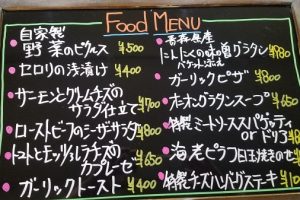 Food MENU
自家製
野菜のピクルス ¥500
セロリの浅漬け ¥400
サーモンとクリームチーズの
サラダ仕立て ¥700
ローストビーフのシーザーサラダ ¥800
トマトとモッツァレラチーズの
カプレーゼ ¥650
ガーリックトースト ¥400
青森県産
にんにくの味噌グラタン ¥780
ガーリックピザ ¥800
オニオングラタンスープ ¥650
特製ミートソーススパゲッティ
or ドリア
海老ピラフ
特製チーズハンバーグステーキ